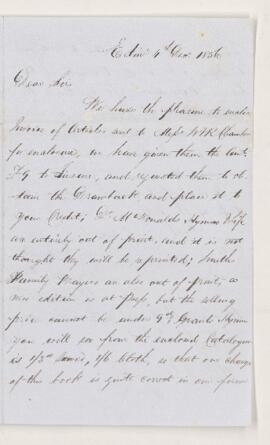 Edinr 4th Decr 1856
Dear Sir
We have the pleasure to enclose
Invoice of Articles sent to Messrs W & R Chambers
for enclosure, we have given them the
to Insure, and requested them to ob-
tain the Drawback and place it to
your Credit; Dr McDonalds Hymns
are entirely out of print, and it is not
thought they will be reprinted; Smiths
Family Prayers are also out of print, a
new edition is at Press, but the selling
price cannot be under 9d Grants Hymns
you will see from the enclosed Catalogue
is 1/3 sewed, 1/6 cloth, so that our charge
of this book is quite correct in our former